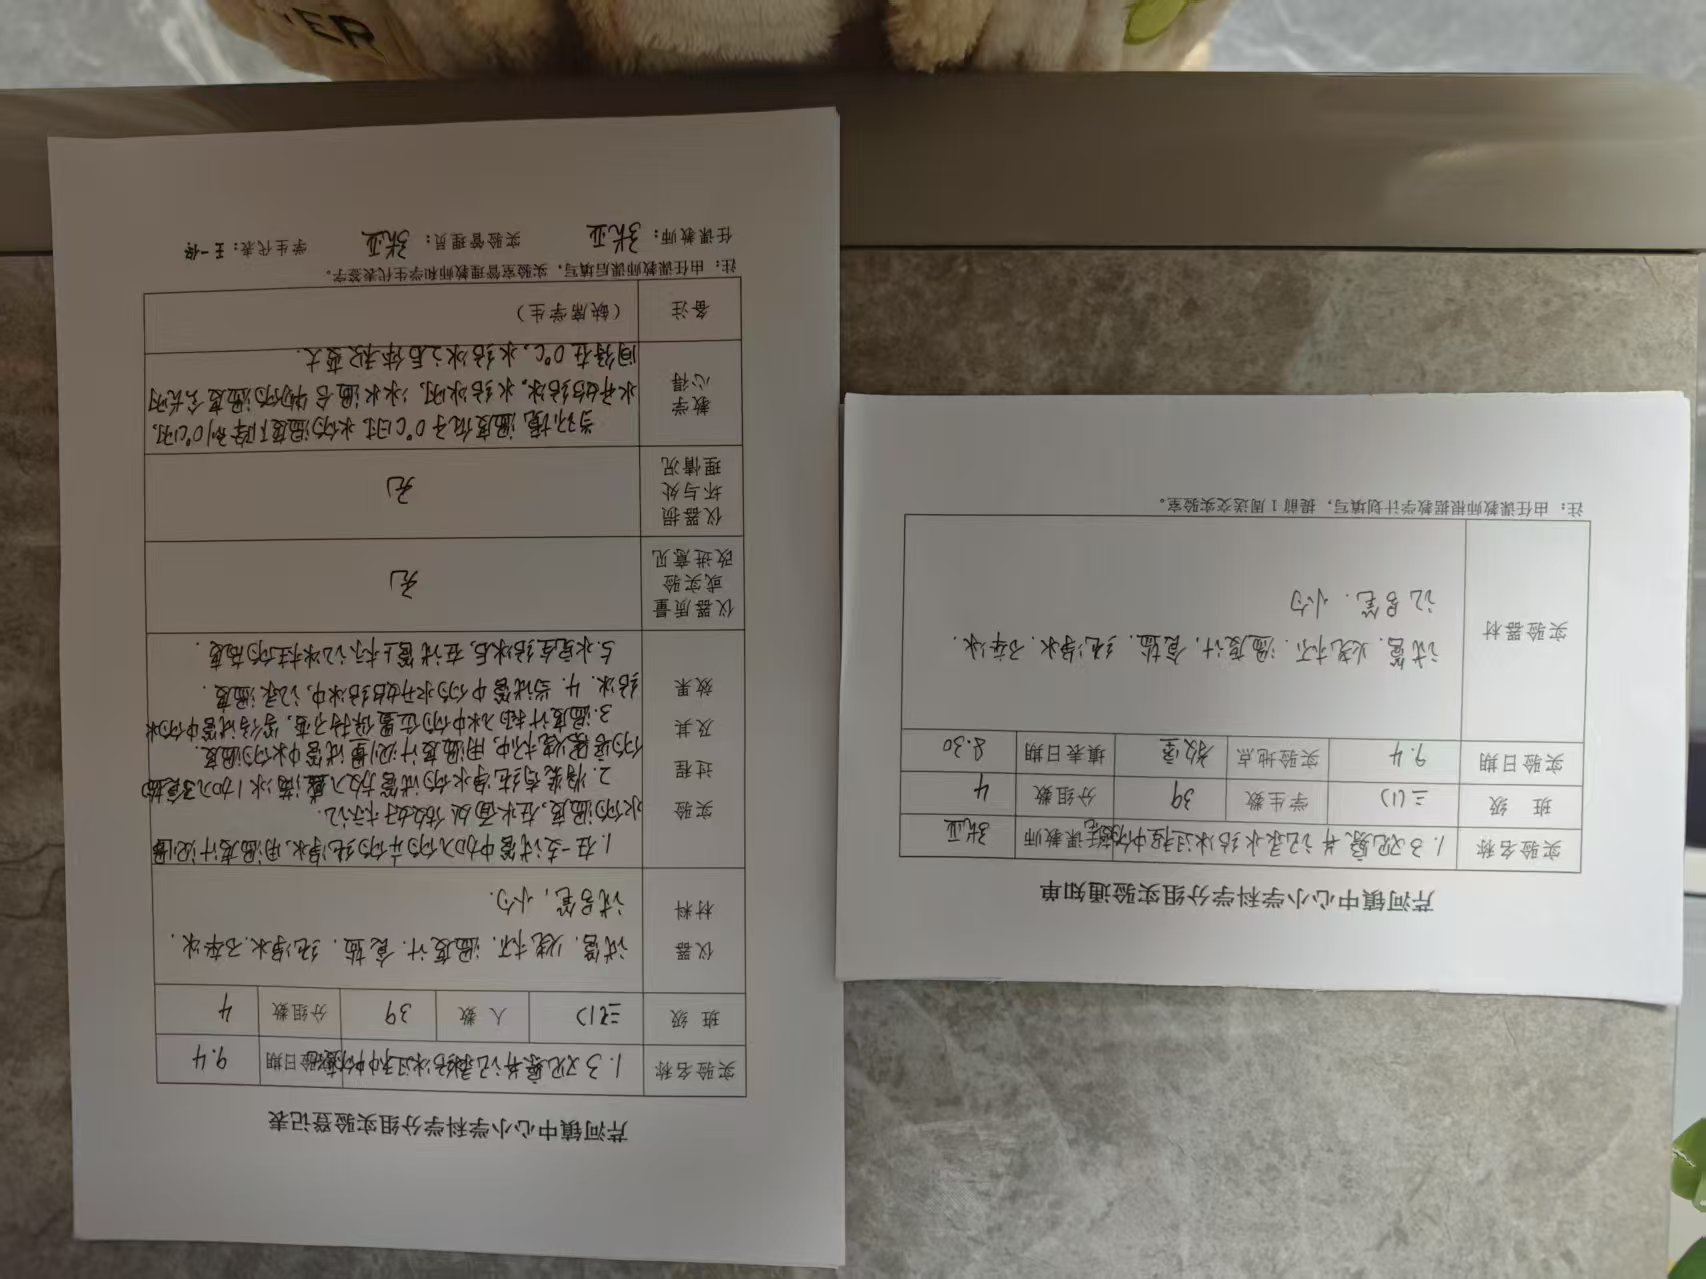 芹河镇中心小学科学分组实验登记表
实验名称 1.3观察并记录水结冰过程中的 实验日期 9.4
班 级 三(1) 人 数 39 分组数 4
仪器材料 试管、烧杯、温度计、食盐、纯净水、碎冰、
试号笔，小勺.
实验过程及其效果
1.在一支试管中加入约的纯净水,用温度计记
水的温度,在水面处做好标记.
2.将装有纯净水的试管放入盛满冰(加入了食盐
的容器烧杯中,用温度计测量试管中水的温度.
3.温度计插入水中的位置保持不变,等待试管中的水
结冰. 4.当试管中的水开始结冰中,记录温度.
5.水完全结冰后,在试管上标记冰柱的高度.
仪器质量或实验改进意见 无
仪器损坏与处理情况 无
教学心得
当环境温度低于0℃时水的温度下降到0℃时,
水开始结冰,水结冰时,冰水混合物的温度会长时
间待在0℃,水结冰之后体积变大.
备注 （缺席学生）
注：由任课教师课后填写，实验室管理教师和学生代表签字。
任课教师：张亚 实验管理员：张亚 学生代表：王一
ER
芹河镇中心小学科学分组实验通知单
实验名称 1.3观察并记录水结冰过程中的 任课教师 张亚
班 级 三(1) 学生数 39 分组数 4
实验日期 9.4 实验地点 教室 填表日期 8.30
实验器材 试管、烧杯、温度计、食盐、纯净水、碎冰、
记号笔、小勺
注：由任课教师根据教学计划填写，提前1周送交实验室。